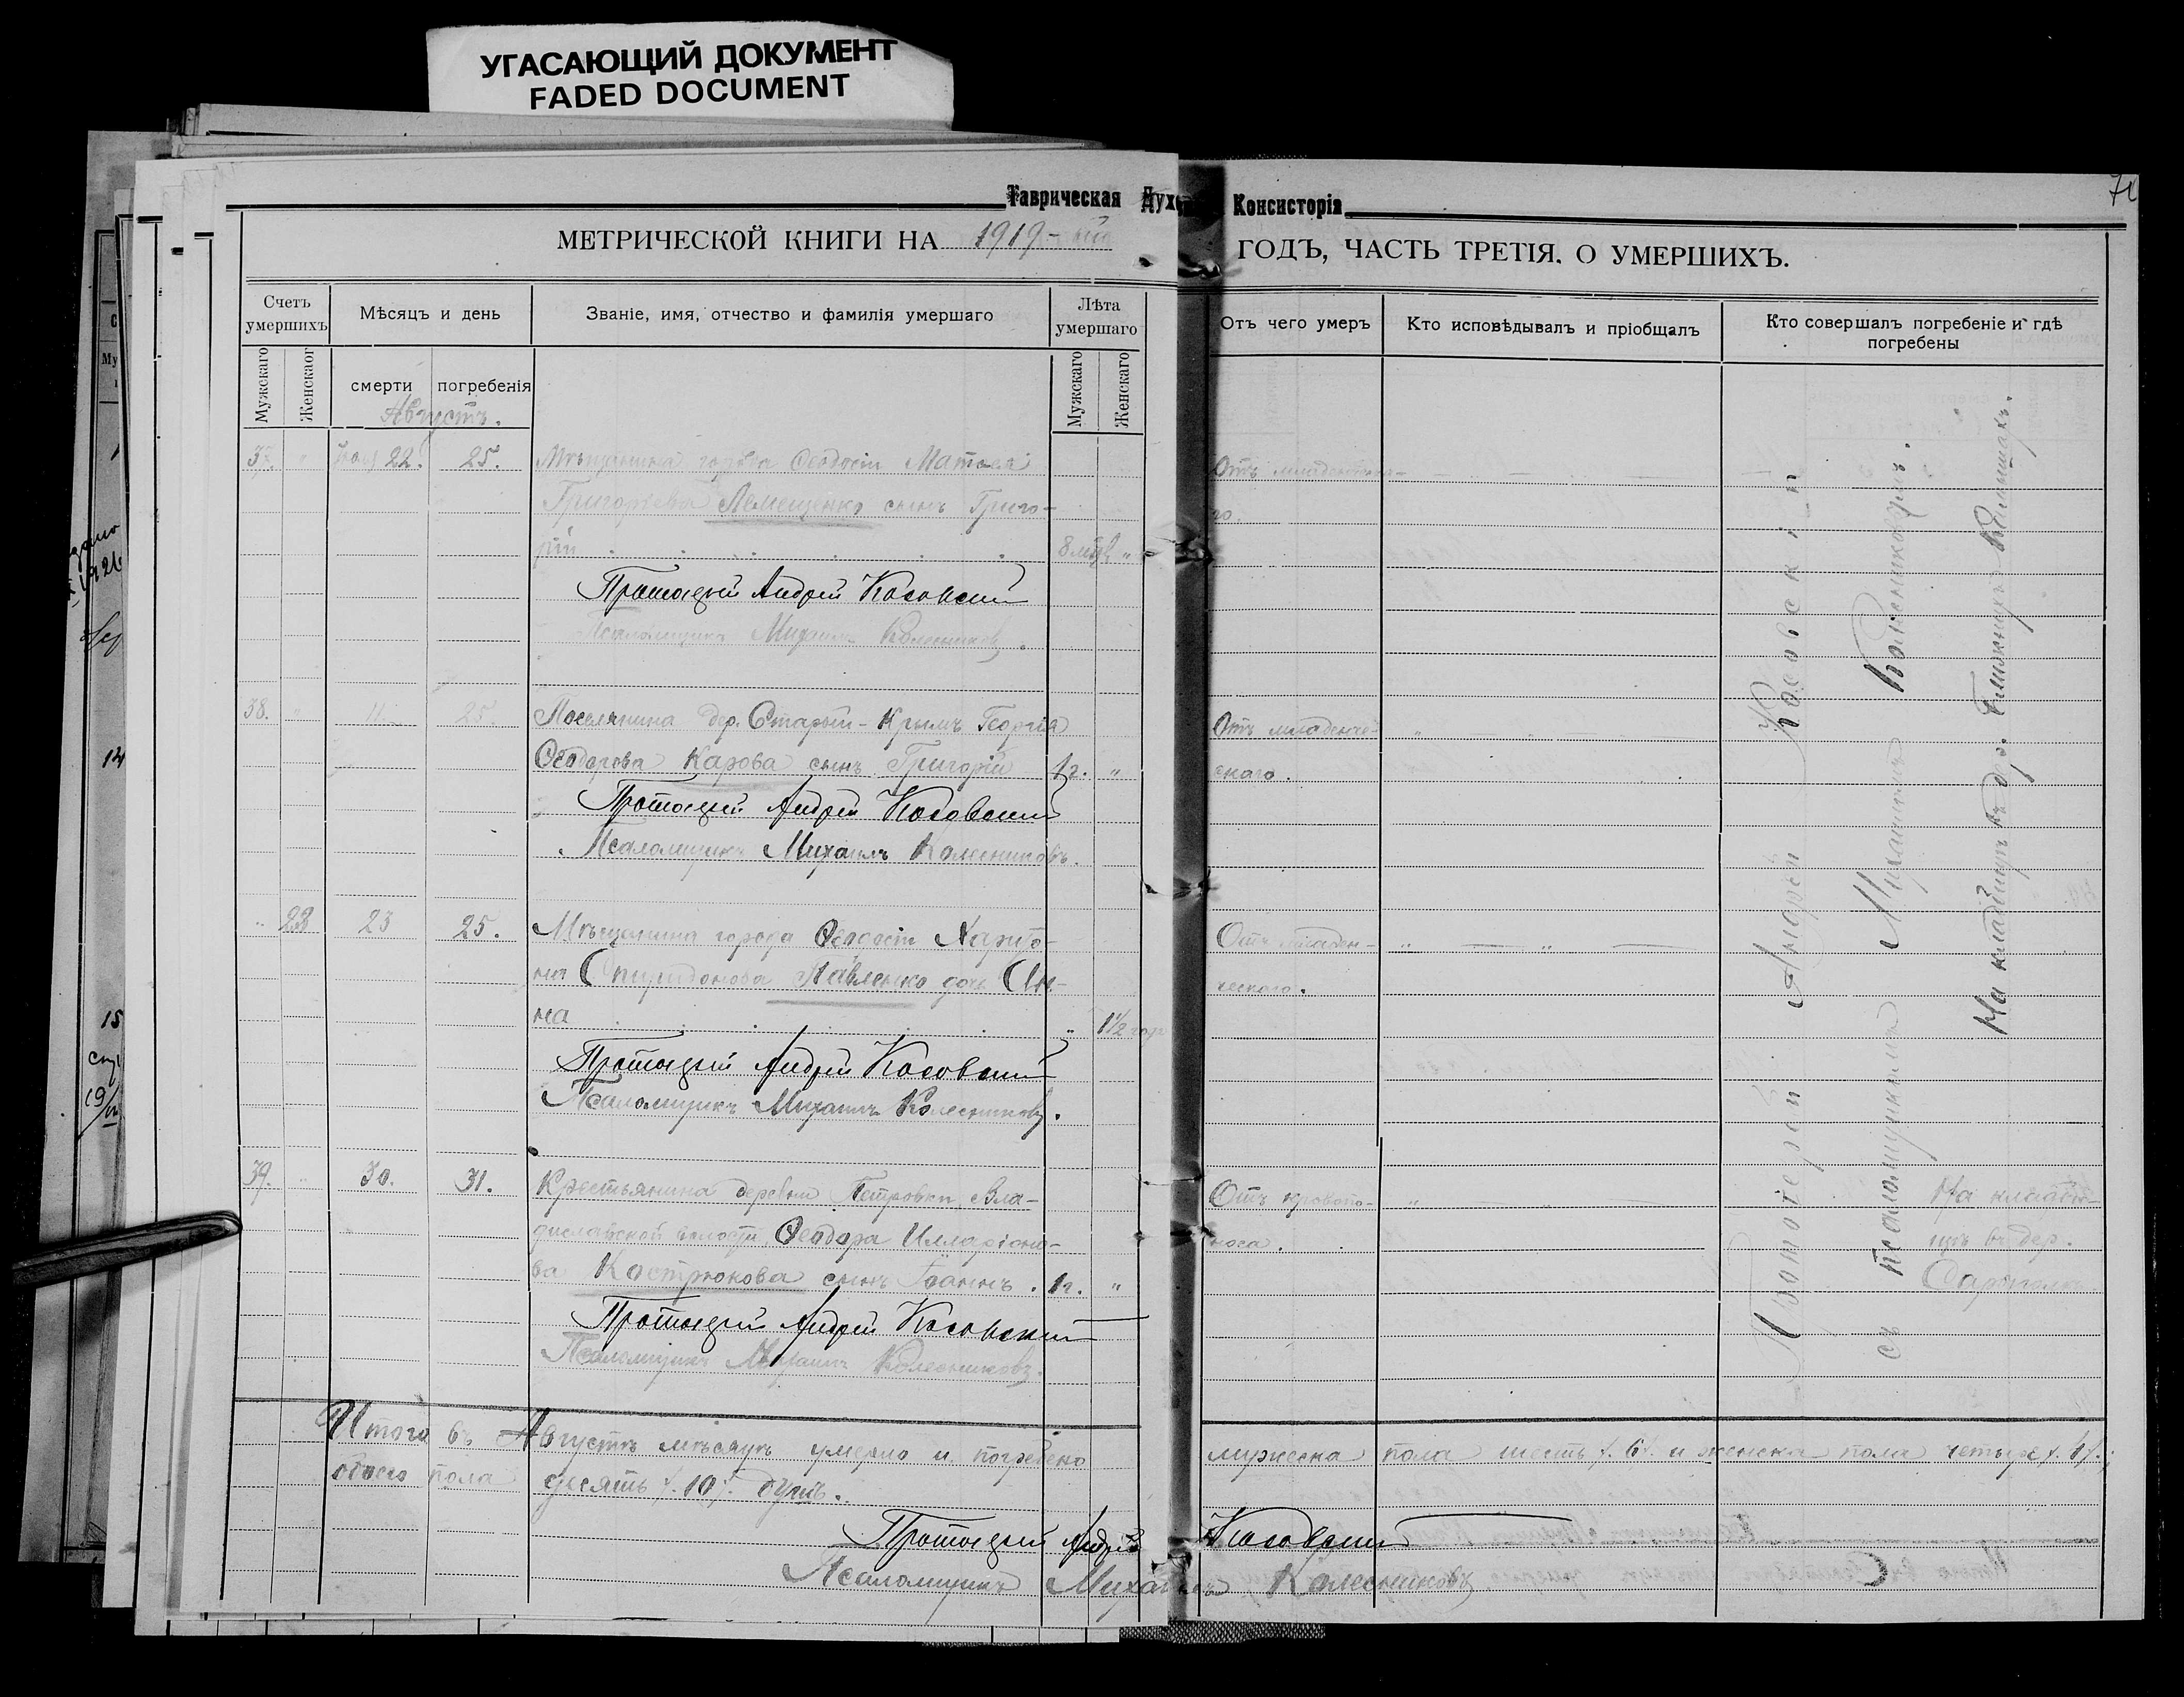 УГАСАЮЩИЙ ДОКУМЕНТ
FADED DOCUMENT
Таврическая Духо
Консисторія
МЕТРИЧЕСКОЙ КНИГИ НА 1919-ый
ГОДЪ, ЧАСТЬ ТРЕТІЯ, О УМЕРШИХЪ.
Счетъ умершихъ
Мѣсяцъ и день
Званіе, имя, отчество и фамилія умершаго
Лѣта умершаго
Отъ чего умеръ
Кто исповѣдывалъ и пріобщалъ
Кто совершалъ погребеніе и гдѣ погребены
Мужскаго
Женскаго
смерти
погребенія
Мужскаго
Женскаго
Августъ.
37. " 22. 25. Мѣщанина города Ѳеодосіи Матвея
Григорьева Лемещенко сынъ Григо-
рій 8 мѣс. "
Отъ младенческа-
го.
Протоіерей Андрей Косовскій
Псаломщикъ Михаилъ Колесниковъ.
38. " 11 25. Поселянина дер. Старый-Крымъ Георгія
Ѳеодорова Карова сынъ Григорій 1 г. "
Отъ младенче-
скаго.
Протоіерей Андрей Косовскій
Псаломщикъ Михаилъ Колесниковъ.
" 23 23 25. Мѣщанина города Ѳеодосіи Харито-
на Спиридонова Павленко дочь Ан-
на " 1 1/2 года
Отъ младен-
ческаго.
Протоіерей Андрей Косовскій
Псаломщикъ Михаилъ Колесниковъ.
39. " 30. 31. Крестьянина деревни Петровки Вла-
диславской волости Ѳеодора Илларіоно-
ва Кострюкова сынъ Іоаннъ. 1 г. "
Отъ кровопо-
носа.
Протоіерей Андрей Косовскій
Псаломщикъ Михаилъ Колесниковъ.
Протоіерей Андрей Косовскій
съ псаломщикомъ Михаиломъ Колесниковымъ.
На кладбищѣ въ дер.
На кладби-
щѣ въ дер.
Итого въ Августѣ мѣсяцѣ умерло и погребено
мужеска пола шесть /. 6 /. и женска пола четыре /. 4 /.;
обоего пола десять /. 10 /. душъ.
Протоіерей Андрей Косовскій
Псаломщикъ Михаилъ Колесниковъ